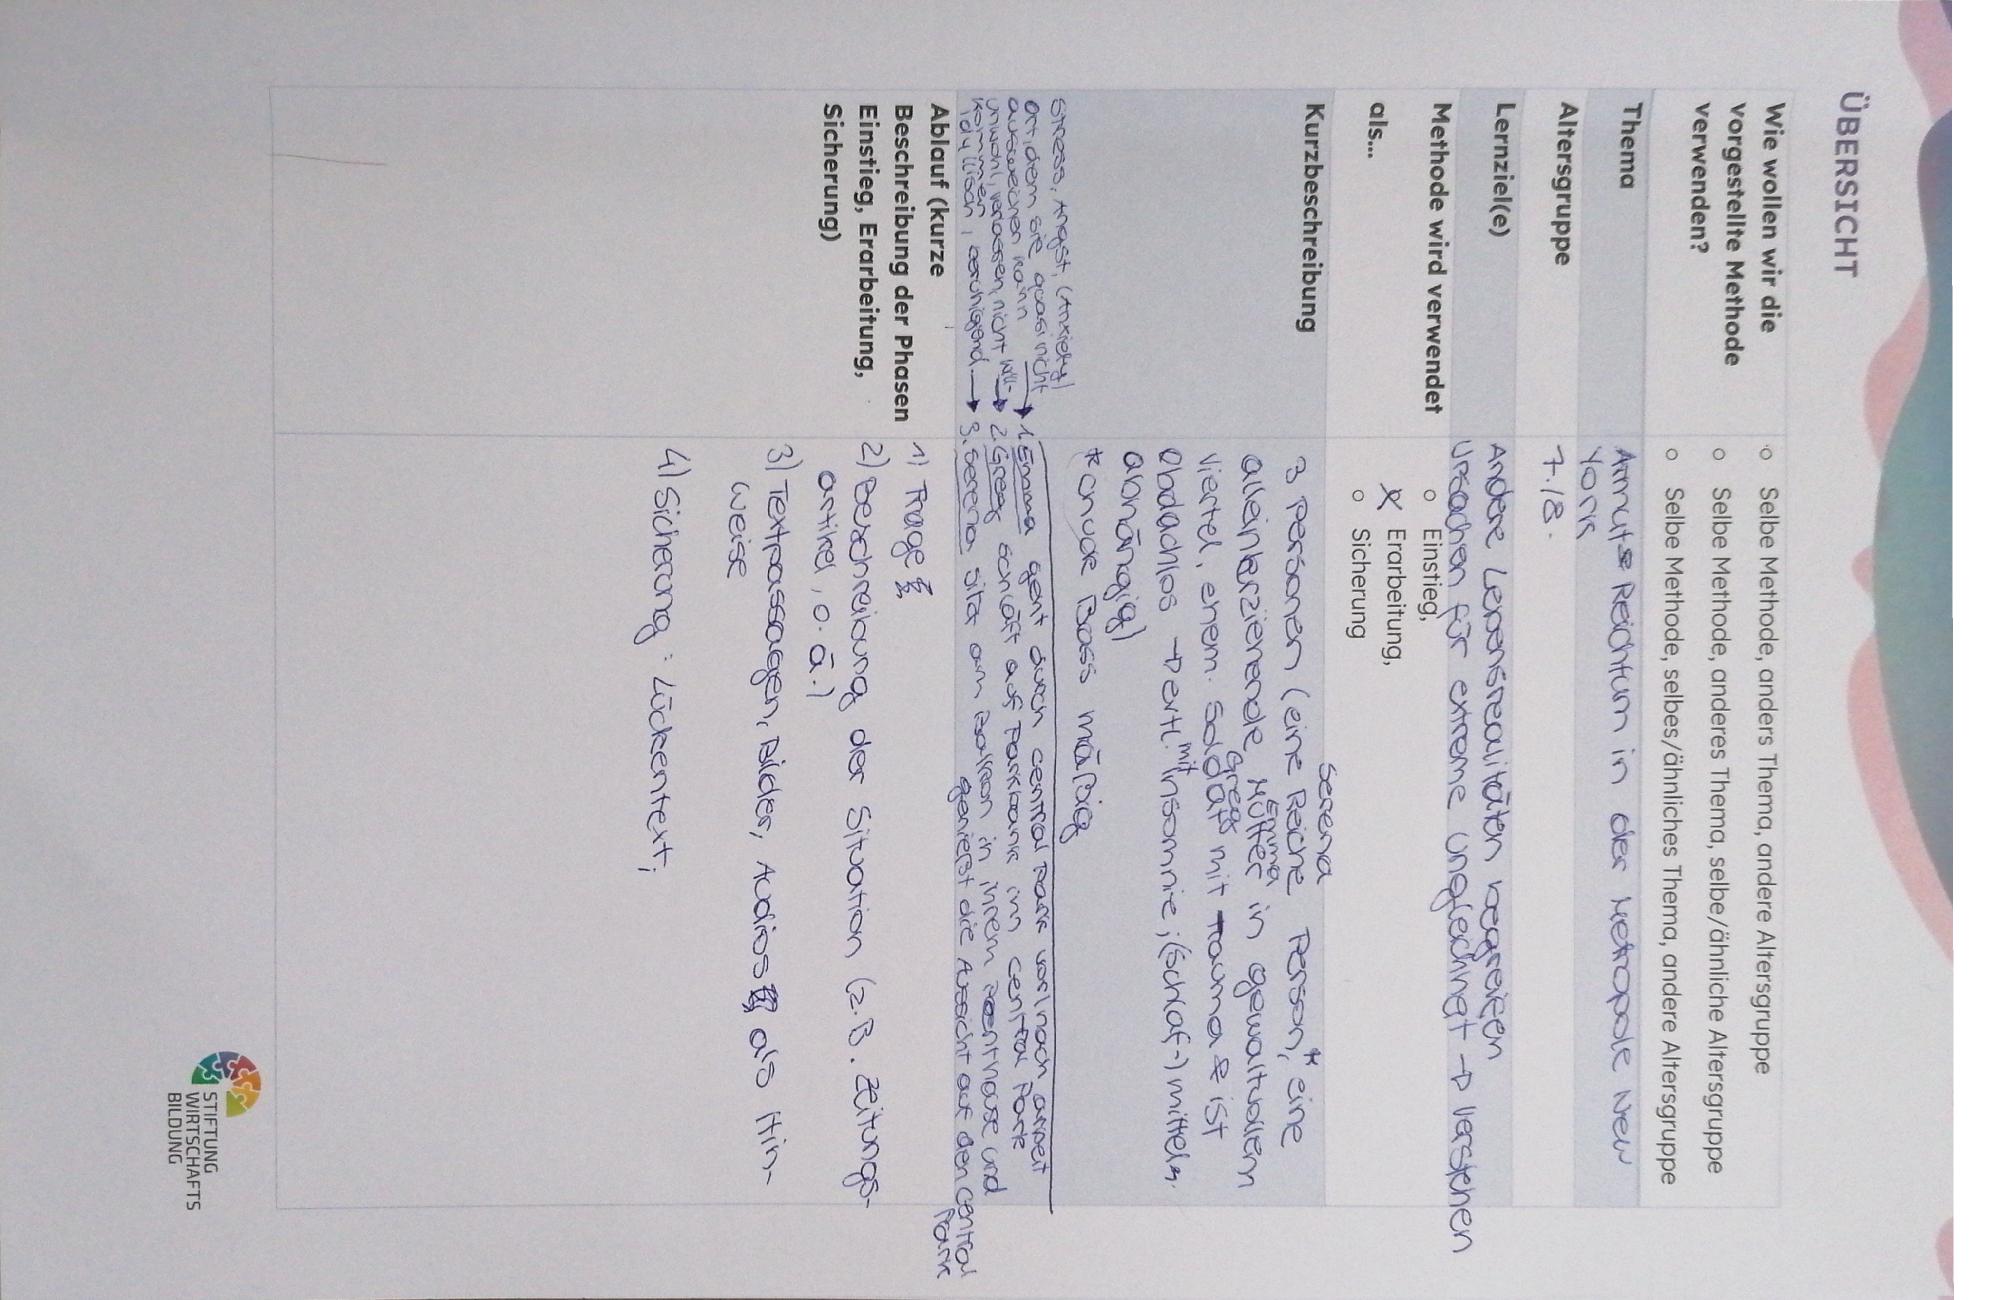 ÜBERSICHT
Wie wollen wir die
vorgestellte Methode
verwenden?
○ Selbe Methode, anders Thema, andere Altersgruppe
○ Selbe Methode, anderes Thema, selbe/ähnliche Altersgruppe
○ Selbe Methode, selbes/ähnliches Thema, andere Altersgruppe
Thema
Armut & Reichtum in der Metropole New
York
Altersgruppe
7./8.
Lernziel(e)
Andere Lebensrealitäten begreifen
Ursachen für extreme Ungleichheit → verstehen
Methode wird verwendet
als...
○ Einstieg,
X Erarbeitung,
○ Sicherung
Kurzbeschreibung
Serena
3 Personen (eine Reiche Person,* eine
alleinerziehende Mutter in gewaltvollem
Emma
Viertel, ehem. Soldat mit Trauma & ist
Gregg
Obdachlos → evtl. mit Insomnie; (Schlaf-) mittels.
abhängig)
* Crude Boss mäßig
Stress, Angst, (Anxiety)
Ort, dem sie quasi nicht
ausweichen kann →
unwohl, verlassen, nicht will-
kommen →
idyllisch, beruhigend →
1. Emma geht durch Central Park vor/nach Arbeit
2. Gregg schläft auf Parkbank im Central Park
3. Serena sitzt am Balkon in ihrem Penthouse und
genießt die Aussicht auf den Central
Park
Ablauf (kurze
Beschreibung der Phasen
Einstieg, Erarbeitung,
Sicherung)
1) Frage
2) Beschreibung der Situation (z.B. Zeitungs-
artikel, o.ä.)
3) Textpassagen, Bilder, Audios als Hin-
weise
4) Sicherung: Lückentext;
STIFTUNG
WIRTSCHAFTS
BILDUNG